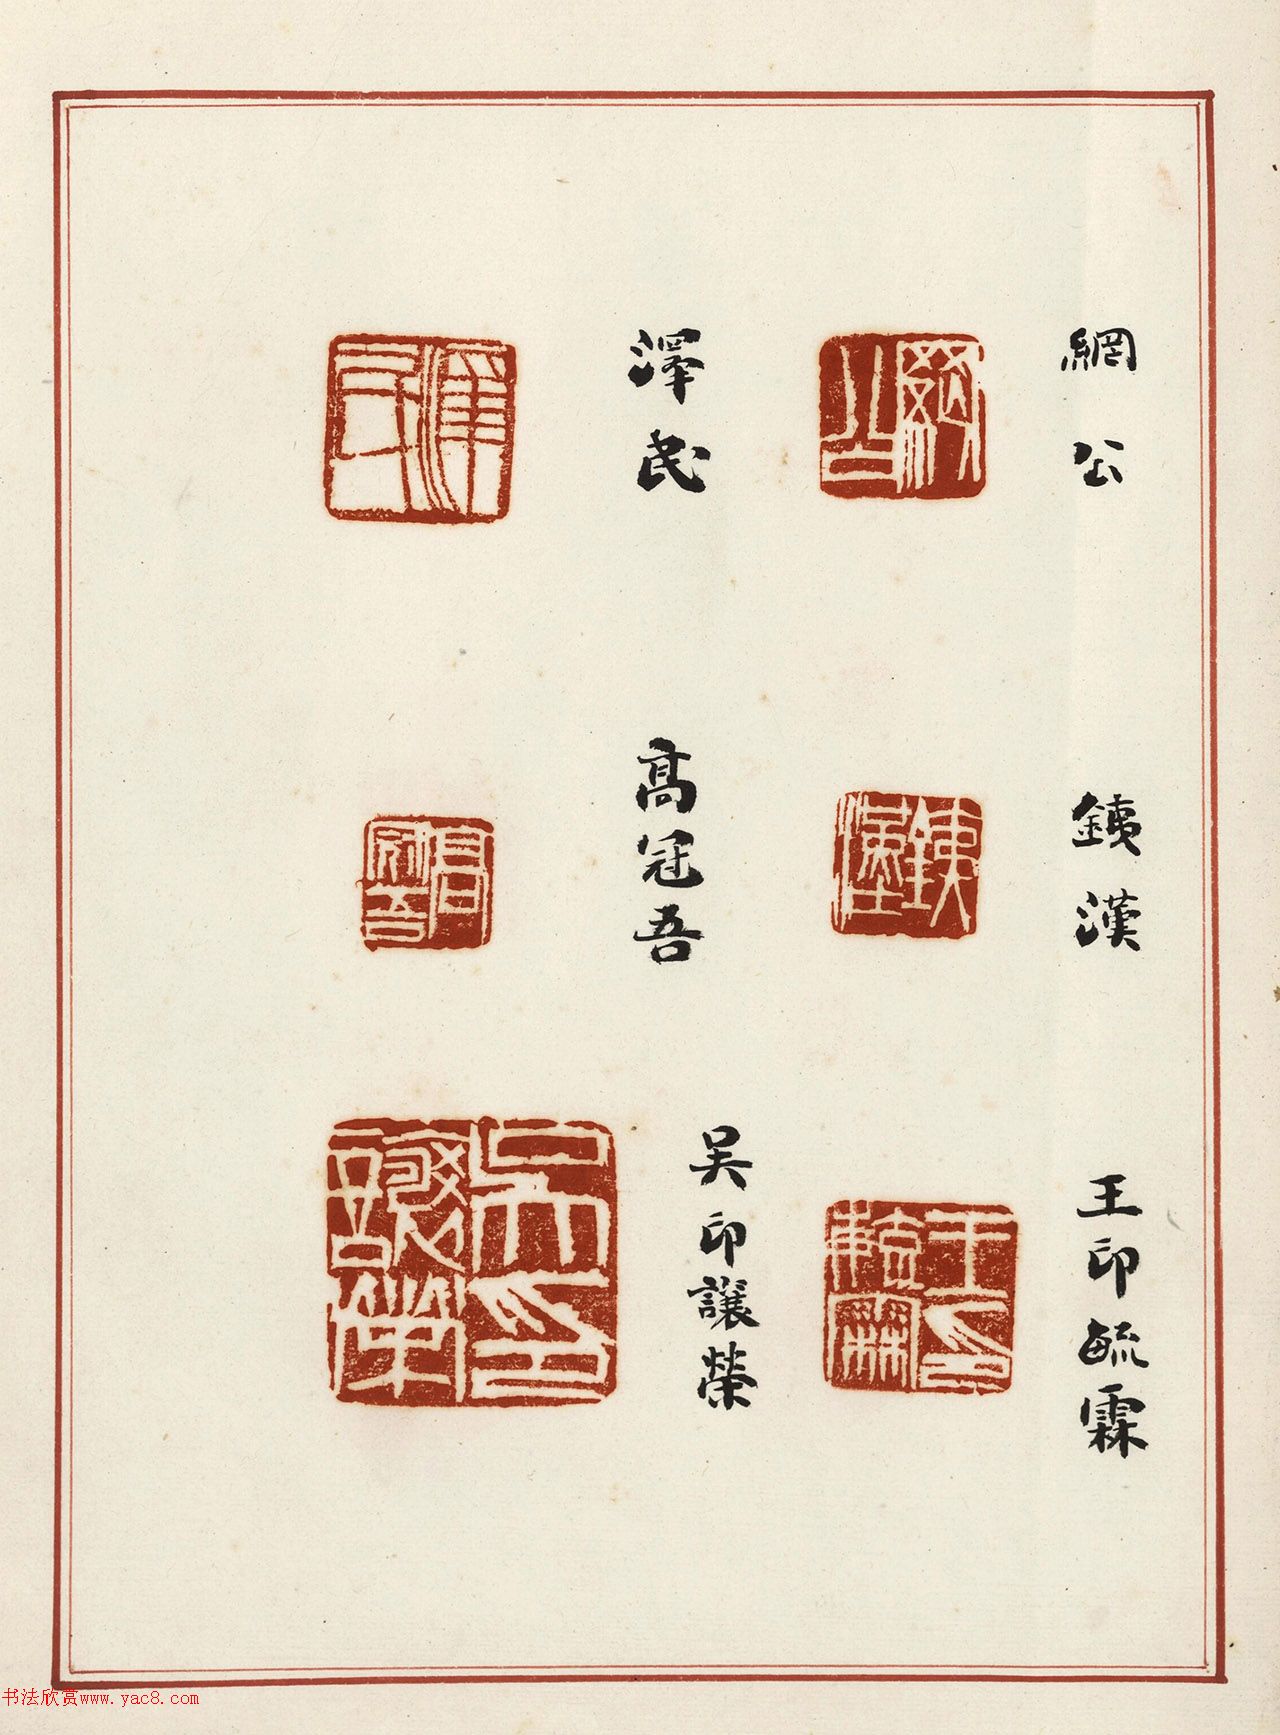 網公
銕漢
王印毓霖
澤民
高冠吾
吴印讓榮
書法欣赏www.yac8.com